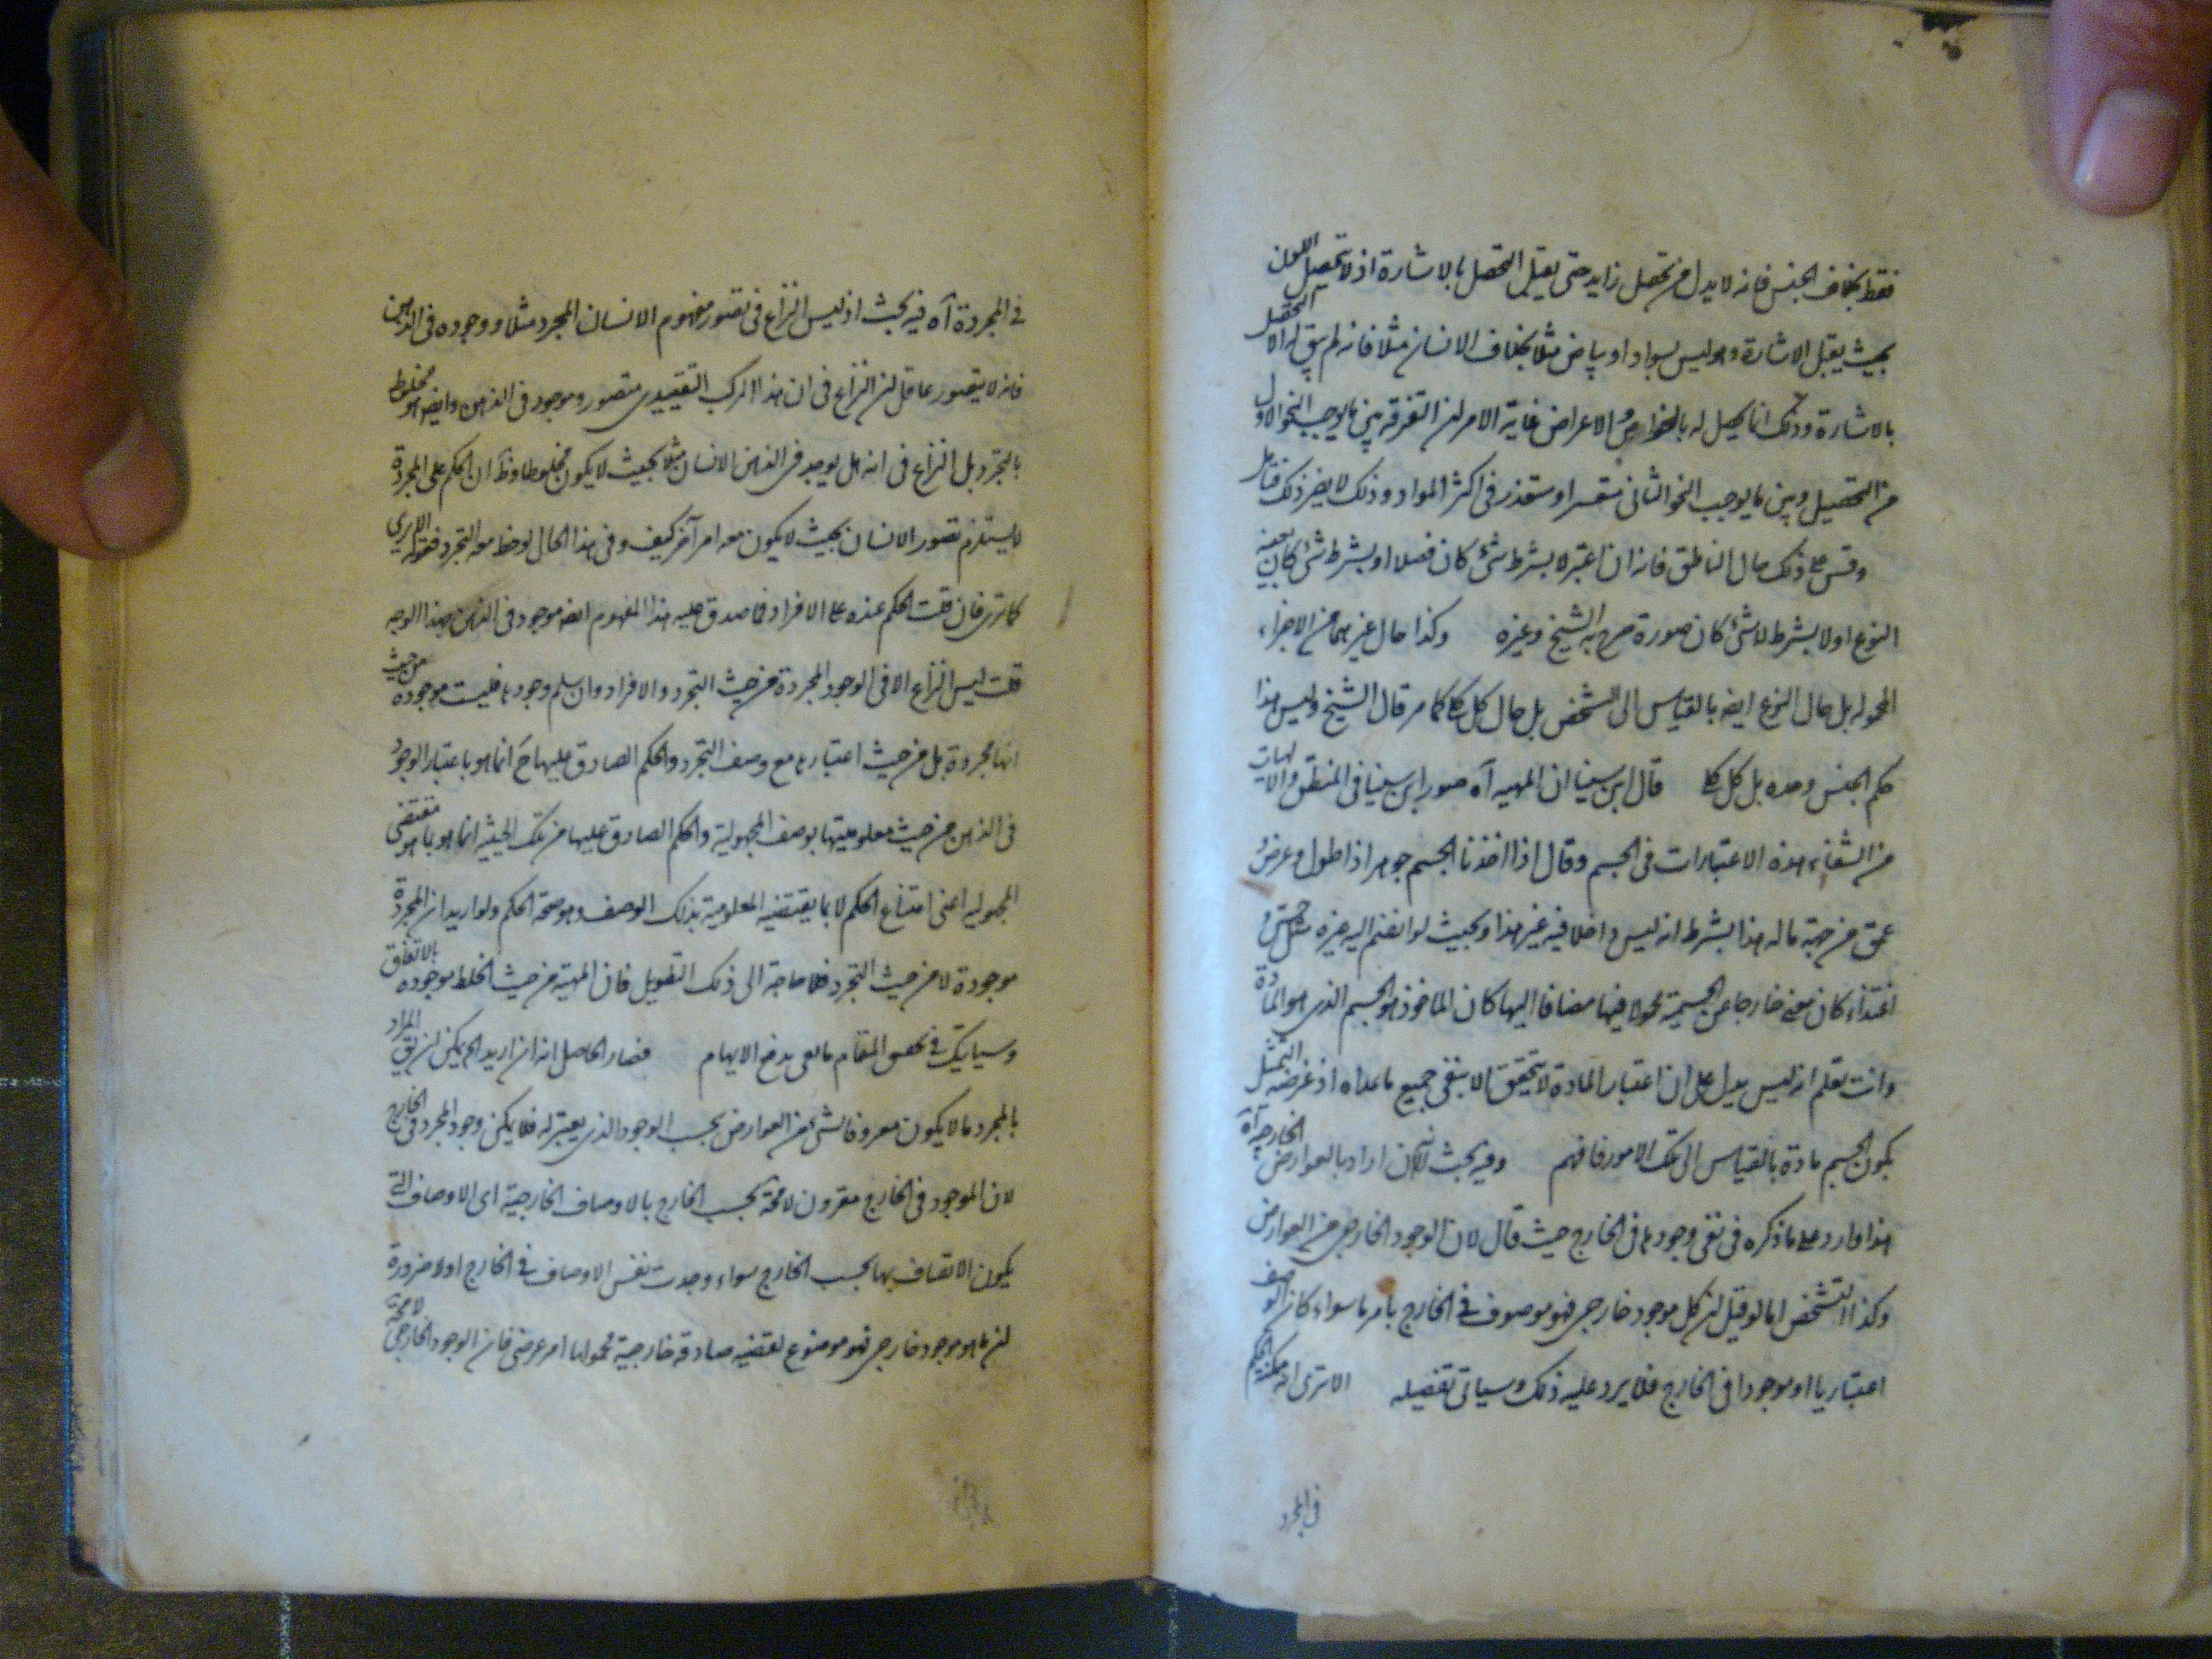 فقط بخلاف الجنس فانه لا بد له من تحصل زايد حتى يقبل التحصل بالاشارة اذ لا تحصيل اللون
بحيث يقبل الاشارة وهو ليس بسواد او بياض مثلا بخلاف الانسان مثلا فانه لم يبق له الا التحصل
بالاشارة وذلك انما يحصل له بالخواص والاعراض غاية الامر ان التفرقة بين ما يوجب النحو الاول
من التحصيل وبين ما يوجب النحو الثانى متعسر او متعذر فى اكثر المواد وذلك لا يضر ذلك فتامل
وقس على ذلك حال الناطق فانه ان اعتبر لا بشرط شئ كان فصلا او بشرط شئ كان بعينه
النوع او لا بشرط لا شئ كان صورة صرح به الشيخ وغيره وكذا حال غيرهما من الاجزاء
المحمولة بل حال النوع ايضا بالقياس الى الشخص بل حال كل كلى كما مر قال الشيخ وليس هذا
حكم الجنس وحده بل كل كلى قال ابن سينا ان المهية آه صور ابن سينا فى المنطق والالهيات
من الشفاء هذه الاعتبارات فى الجسم وقال اذا اخذنا الجسم جوهرا ذا طول وعرض و
عمق من جهة ما له هذا بشرط انه ليس داخلا فيه غير هذا وبحيث لو انضم اليه غيره مثل حس و
اغتذاء كان معنى خارجا عن الجسمية محمولا فيها مضافا اليها كان الماخوذ هو الجسم الذى هو المادة
وانت تعلم انه ليس يدل على ان اعتبار المادة لا يتحقق الا بنفى جميع ما عداه اذ غرضه التمثيل
بكون الجسم مادة بالقياس الى تلك الامور فافهم وفيه بحث لان اراد بالعوارض الخارجية آه
هذا وارد على ما ذكره فى نفى وجودها فى الخارج حيث قال لان الوجود الخارجى من العوارض
وكذا التشخص اما لو قيل ان كل موجود خارجى فهو موصوف فى الخارج بامر ما سواء كان الوصف
اعتباريا او موجودا فى الخارج فلا يرد عليه ذلك وسياتى تفصيله الا ترى انه يمكن الحكم
فى المجرد
فى المجردة آه فيه بحث اذ ليس النزاع فى تصور مفهوم الانسان المجرد مثلا ووجوده فى الذهن
فانه لا يتصور عاقل ان النزاع فى ان هذا المركب التقييدى متصور وموجود فى الذهن وايضا هو مخلوط
بالتجرد بل النزاع فى انه هل يوجد فى الذهن الانسان مثلا بحيث لا يكون مخلوطا وظ ان الحكم على المجردة
لا يستلزم تصور الانسان بحيث لا يكون معه امر آخر كيف وفى هذا الحال لوحظ معه التجرد فقوله
كما ترى فان قلت الحكم عنده على الافراد فما صدق عليه هذا المفهوم ايضا موجود فى الذهن بهذا الوجه
قلت ليس النزاع الا فى الوجود المجردة من حيث التجرد والافراد وان سلم وجودها فليست موجودة من حيث
انها مجردة بل من حيث اعتبارها مع وصف التجرد والحكم الصادق عليها ح انما هو باعتبار الوجود
فى الذهن من حيث معلوميتها بوصف المجهولية والحكم الصادق عليها من تلك الحيثية انما هو بما هو مقتضى
المجهولية اعنى امتناع الحكم لا بما يقتضيه المعلومية بذلك الوصف وهو صحة الحكم ولو اريد ان المجردة
موجودة لا من حيث التجرد فلا حاجة الى ذلك التطويل فان المهية من حيث الخلط موجودة بالاتفاق
وسياتيك فى المقام ما يدفع الايهام فصار الحاصل انه ان اريد لم يكن ان يق المراد
بالمجرد ما لا يكون معروضا لشئ من العوارض بحسب الوجود الذى يعتبر له فلا يمكن وجود المجرد فى الخارج
لان الموجود فى الخارج مقرون لا محة بحسب الخارج بالاوصاف الخارجية اى الاوصاف التى
يكون الاتصاف بها بحسب الخارج سواء وجدت نفس الاوصاف فى الخارج او لا ضرورة
ان ما هو موجود خارجى فهو موضوع لقضيه صادقة خارجية محمولها امر عرضى فان الوجود الخارجى لا محة